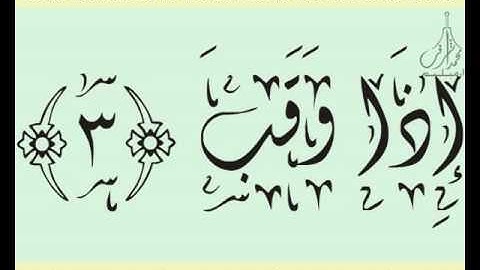 إِذَا وَقَبَ ٣